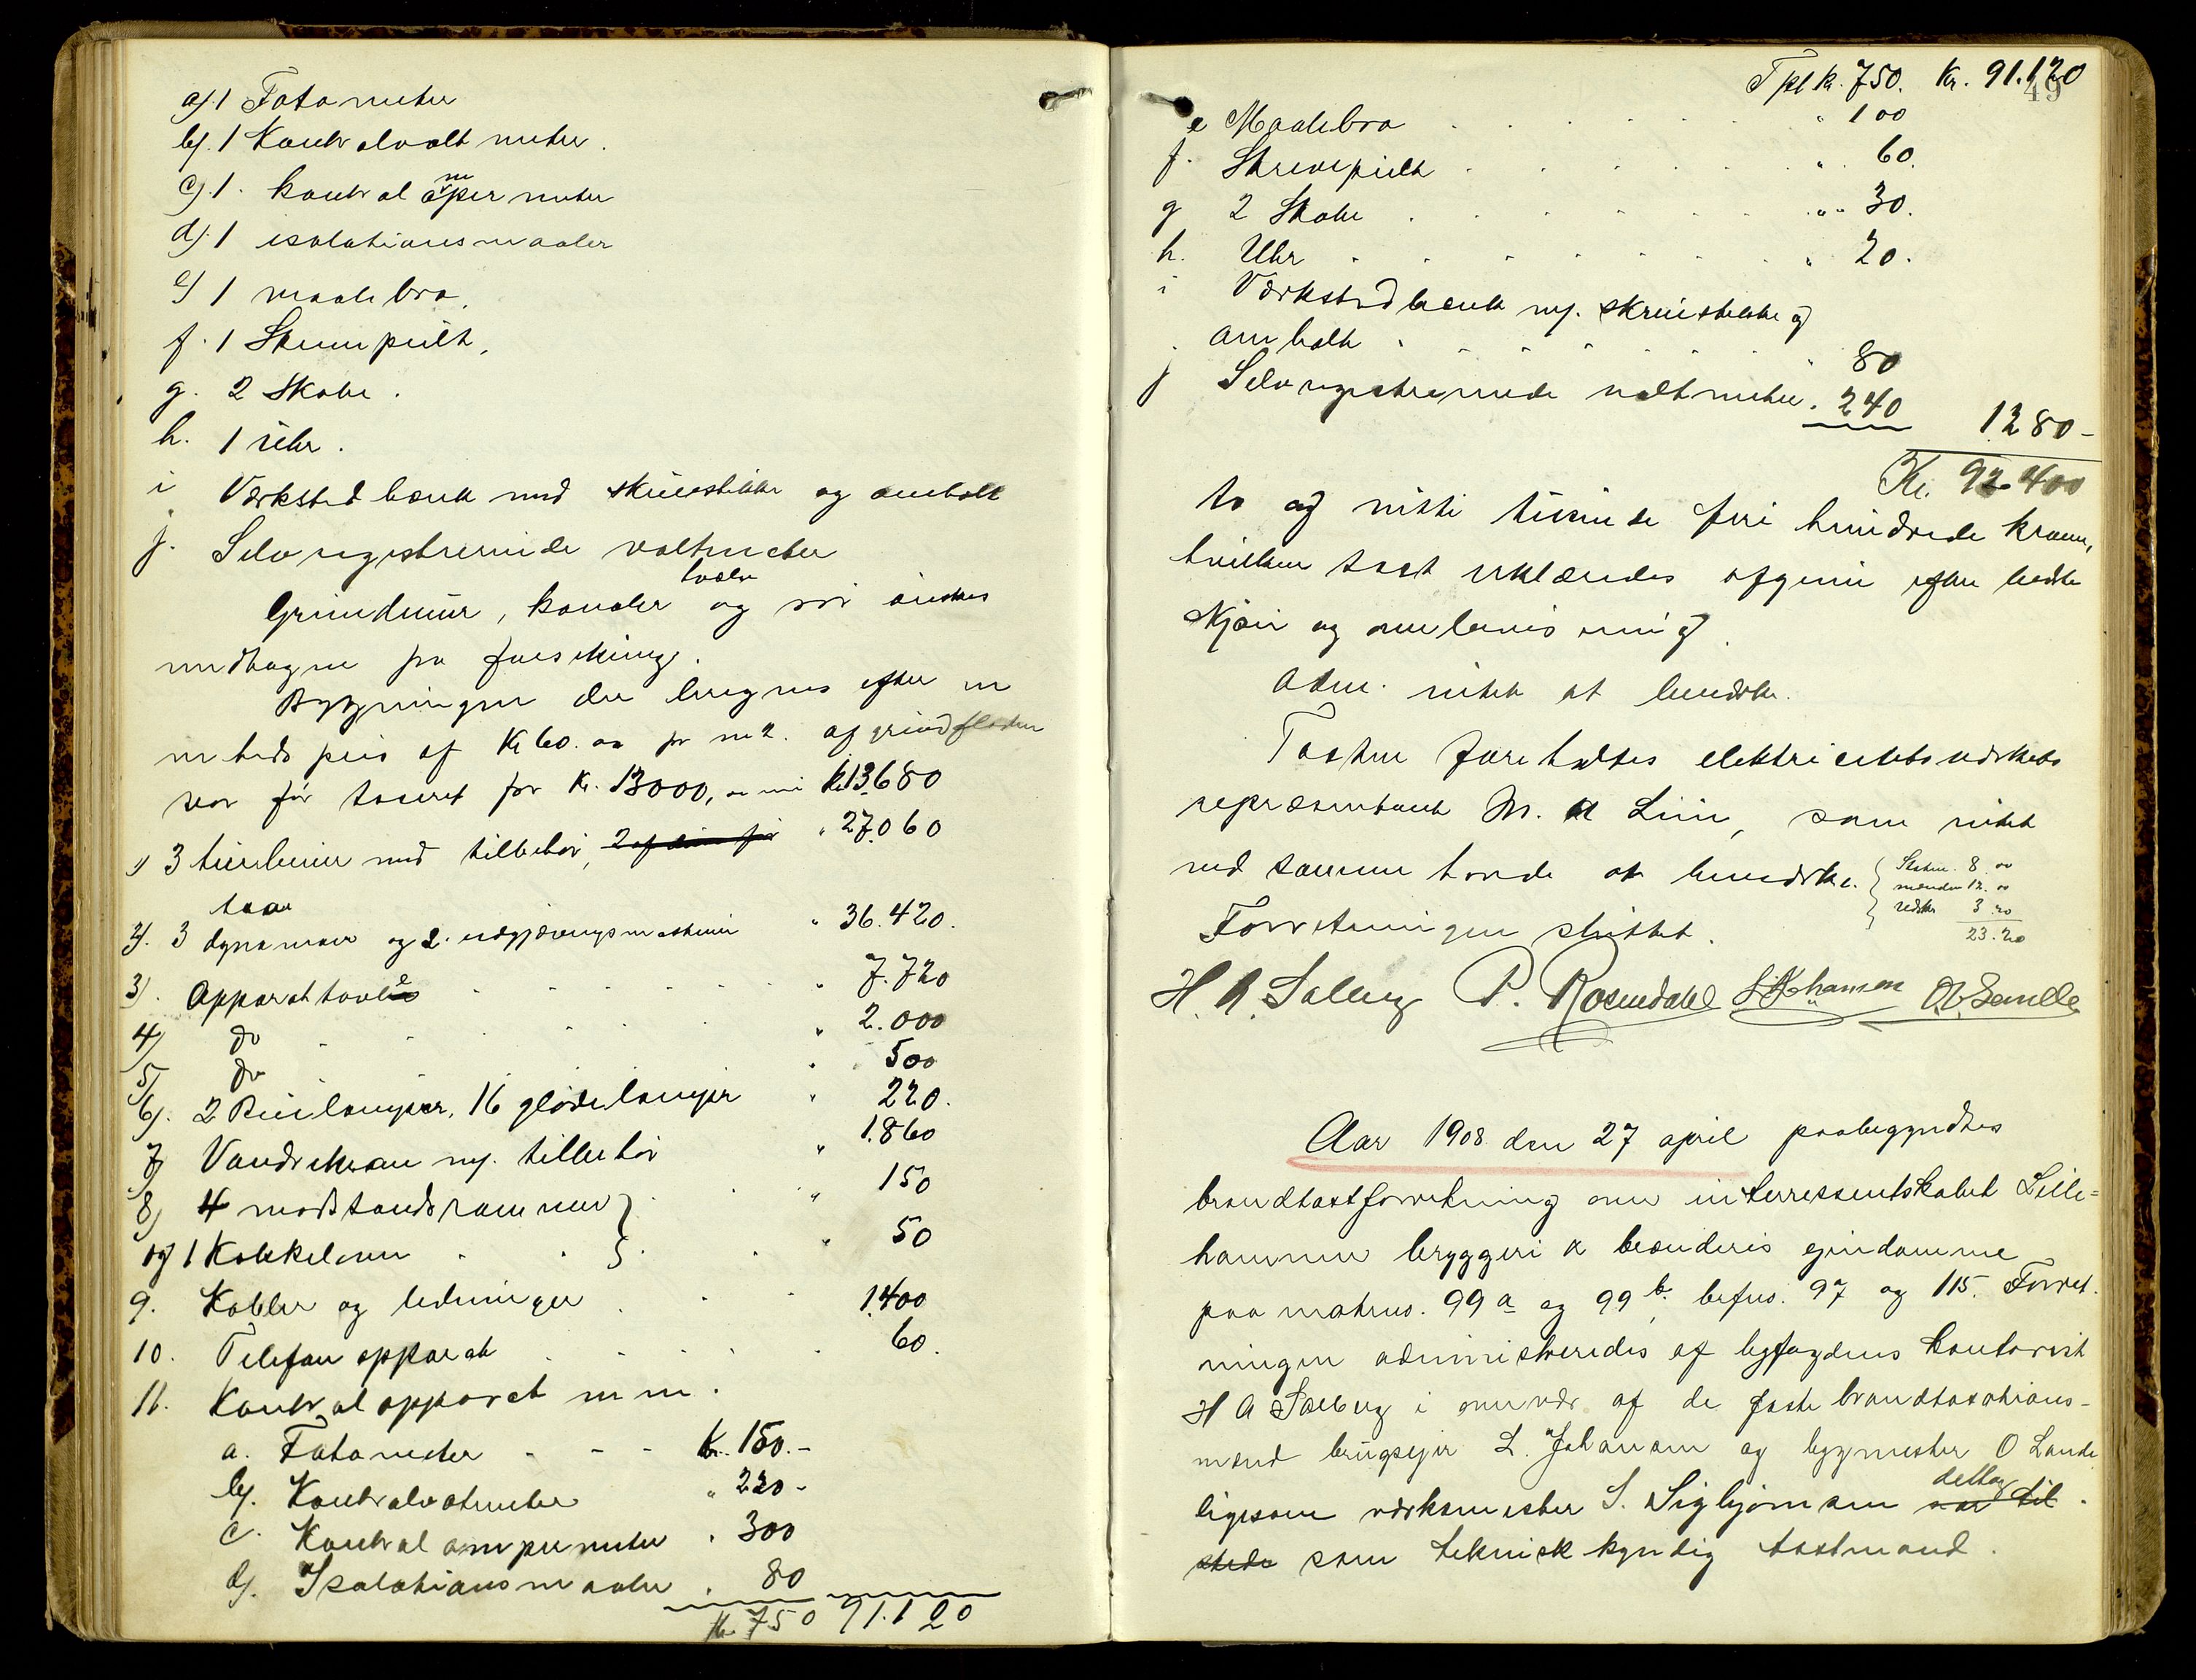 a) 1 Fotometer
b). 1 Kontrolvoltmeter.
c). 1. kontrol ampermeter
d). 1 isolationsmaaler
e) 1 maalebro,
f. 1 Skrivepult,
g. 2 Skabe.
h. 1 uhr.
i Værkstedbænk med skruestikke og ambolt
j. Selvregistrerende voltmeter
Grundmur, kanaler og rør ønskes
undtagne fra forsikring.
Bygningen der beregnes efter en
enheds pris af Kr 60.00 pr m2. af grundfladen
var før taxeret for Kr. 13000, nu Kr 13680
1) 3 turbiner med tilbehør, 2 af dem før " 27.060
2). 3 dynamoer og 2 udgjævningsmaskiner " 36.420.
3). Apparattavle " 7.720
4) do " 2.000
5) do " 500
6). 2 Buelamper, 16 glødelamper " 220.
7) Vandrekran m. tilbehør " 1.860
8) 4 modstandsrammer } " 150
og 1 Kakkelovn } " 50
9. Kabler og ledninger 1.400
10. Telefon apparat 60.
11. Kontrol apparat m m.
a. Fotometer Kr. 150.-
b). Kontrolvoltmeter " 220-
c. Kontrol ampermeter " 300
d). Isolationsmaaler " 80
Kr. 750 91.120
Tpt kr. 750. Kr. 91.120
49
e Maalebro " 100
f. Skrivepult " 60.
g 2 Skabe " 30.
h. Uhr " 20.
i Værkstedbænk m. skruestikke og
ambolt 80
j Selvregistrerende voltmeter. 240 1280-
Kr. 92.400
to og nitti tusinde fire hundrede kroner,
hvilken taxt erklæredes afgiven efter bedste
skjøn og overbevisning.
Adm. intet at bemærke.
Taxten foreholdtes elektricitetsværkets
repræsentant M. A Lier, som intet
ved samme havde at bemærke. { Skatm. 8.00
mændene 12.00
redsk 3.20
23.20
Forretningen sluttet.
H. A. Salberg P. Rosendahl L Johansen O. Lande
Aar 1908 den 27 april paabegyndtes
brandtaxtforretning over interressentskabet Lille=
hammer bryggeri & brænderis eiendomme
paa matrno. 99 a og 99 b, brfno. 97 og 115. Forret.
ningen administreredes af byfogdens kontorist
H A Salberg i overvær af de faste brandtaxations-
mænd brugseier L. Johansen og bygmester O Lande
ligesom værksmester S. Sigbjørnsen var til deltog
stede som teknisk kyndig taxtmand.